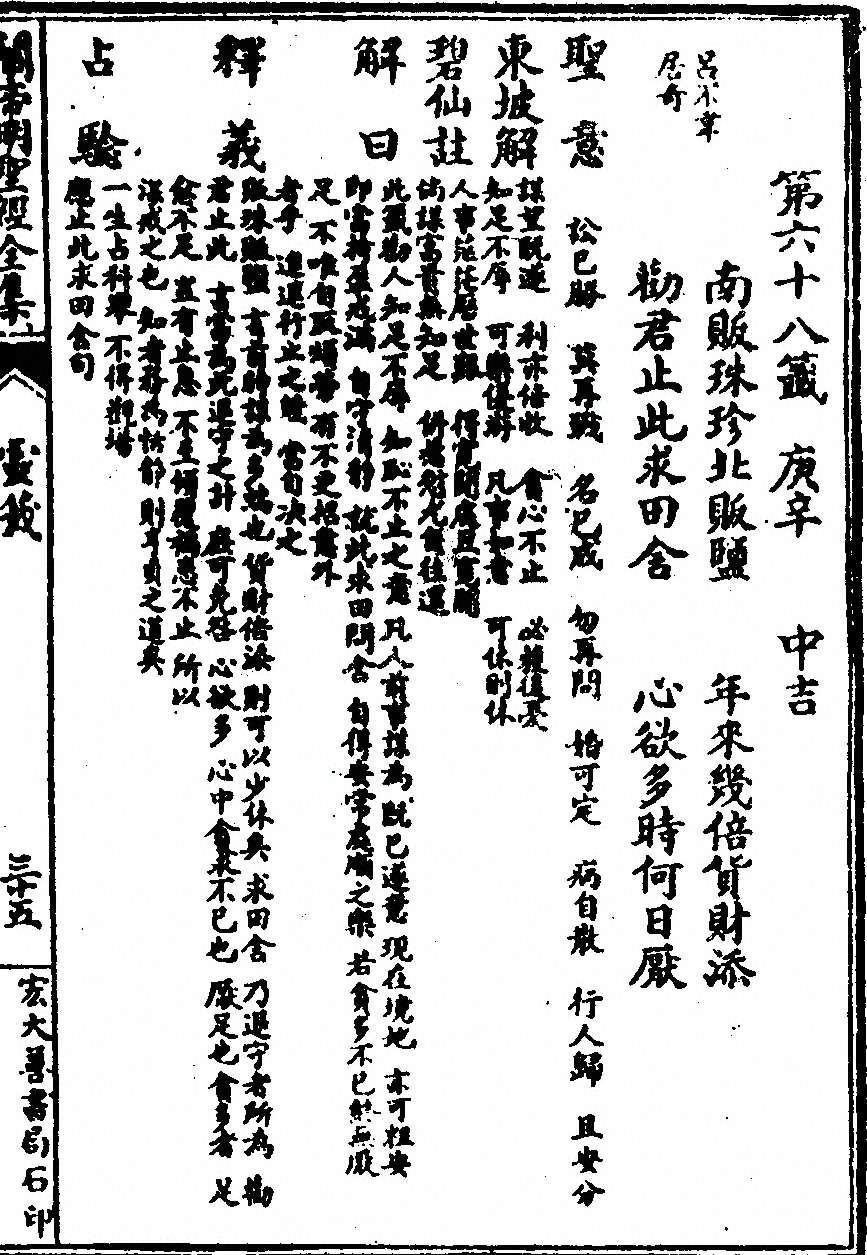 呂不韋
居奇
第六十八籤 庚辛 中吉
南販珠珍北販鹽 年來幾倍貨財添
勸君止此求田舍 心欲多時何日厭
聖意 訟已勝 莫再戰 名已成 勿再問 婚可定 病自散 行人歸 且安分
東坡解
謀望既遂 利亦倍收 貪心不止 必賴後憂
知足不辱 可樂優游 凡事如意 可休則休
碧仙註
人事茫茫歷世艱 得寬閒處且寬閒
尚謀富貴無知足
解曰
此籤勸人知足不辱 知恥不止之意 凡人前事謀為 既已遂意 現在境地 亦可粗安
即當持盈戒滿 自守清靜 就此求田問舍 自得安常處順之樂 若貪多不已 終無厭
足 不唯自取煩勞 有不更招意外
者乎 進退行止之體 當自決之
釋義
販珠販鹽 言前時謀為多端也 貨財倍添 則可以少休矣 求田舍 乃退守者所為 勸
君止此 言當為此退守之計 庶可免咎 心欲多 心中貪求不已也 厭足也 貪多者 足
愈不足 豈有止息 不至傾覆禍患不止 所以
深戒之也
占驗
一生占科舉 不得進場
應止此求田舍句
關帝明聖經全集
靈籤
三十五
宏大善書局石印